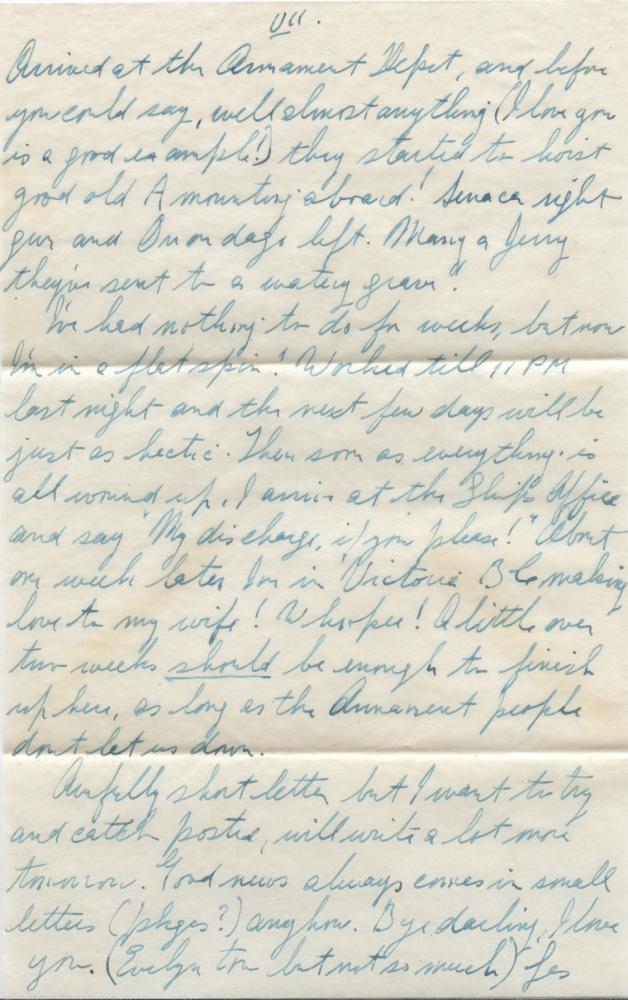 VII.
Arrived at the Armament Depot, and before
you could say, well almost anything (I love you
is a good example!) they started to hoist
good old A mounting aboard! Seneca right
gun and Onondaga left. Many a Jerry
they've sent to a watery grave!
I've had nothing to do for weeks, but now
I'm in a flat spin! Worked till 11 PM
last night and the next few days will be
just as hectic. Then soon as everything is
all wound up, I arrive at the Ship's Office
and say "My discharge, if you please!" About
one week later I'm in Victoria BC making
love to my wife! Whoopee! A little over
two weeks should be enough to finish
up here, as long as the Armament people
don't let us down.
Awfully short letter but I want to try
and catch postie, will write a lot more
tomorrow. Good news always comes in small
letters (phges?) anyhow. Bye darling, I love
you. (Evelyn too but not so much) Les